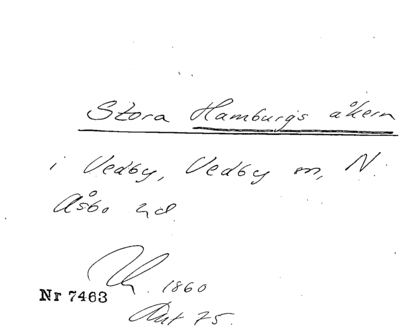 Stora Hamburgs åkern
i Vedby, Vedby sn, N.
Åsbo hd.
1860
Nr 7463
Akt 75.